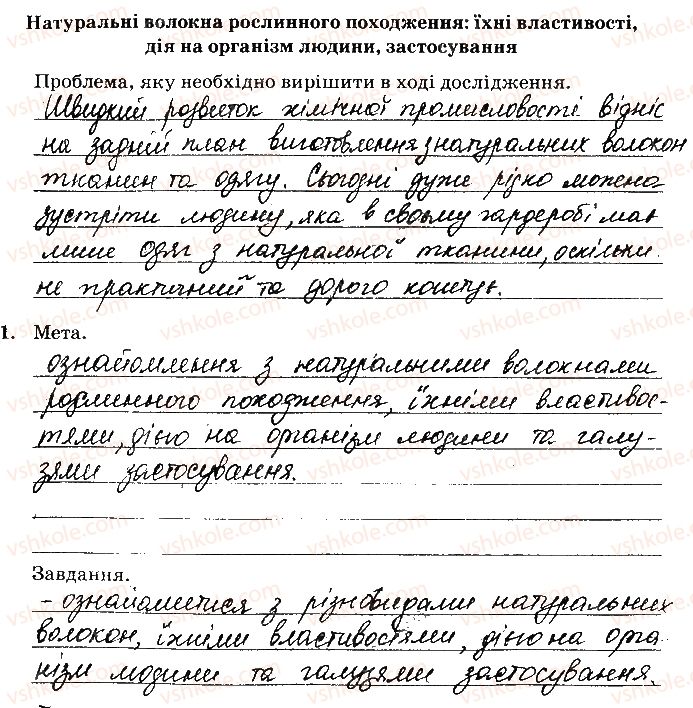 Натуральні волокна рослинного походження: їхні властивості,
дія на організм людини, застосування
Проблема, яку необхідно вирішити в ході дослідження.
Швидкий розвиток хімічної промисловості відніс
на задній план виготовлення з натуральних волокон
тканин та одягу. Сьогодні дуже різко можена
зустріти людину, яка в своєму гардеробі має
лише одяг з натуральної тканини, оскільки
не практичний та дорого коштує.
1. Мета.
ознайомлення з натуральними волокнами
рослинного походження, їхніми властивос-
тями, дією на організм людини та галу-
зями застосування.
Завдання.
- ознайомитися з різновидами натуральних
волокон, їхніми властивостями, дією на орга-
нізм людини та галузями застосування.